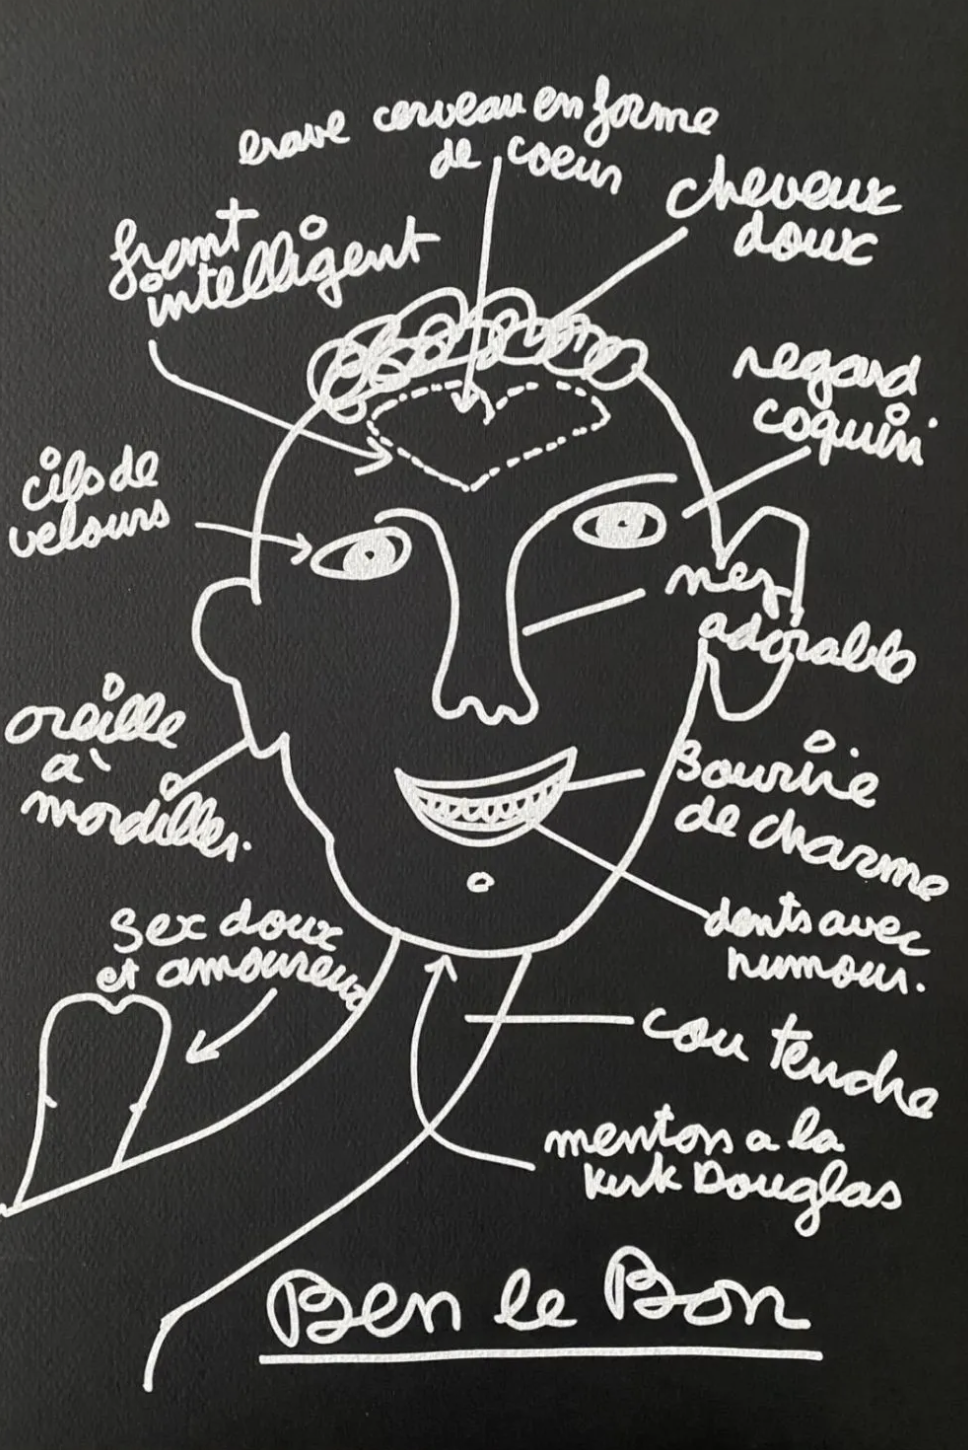 crave cerveau en forme
de coeur
cheveux
doux
front
intelligent
regard
coquin
cils de
velours
nez
adorable
oreille
à
mordiller.
Sourire
de charme
dents avec
humour.
sex doux
et amoureux
cou tendre
menton a la
Kirk Douglas
Ben le Bon